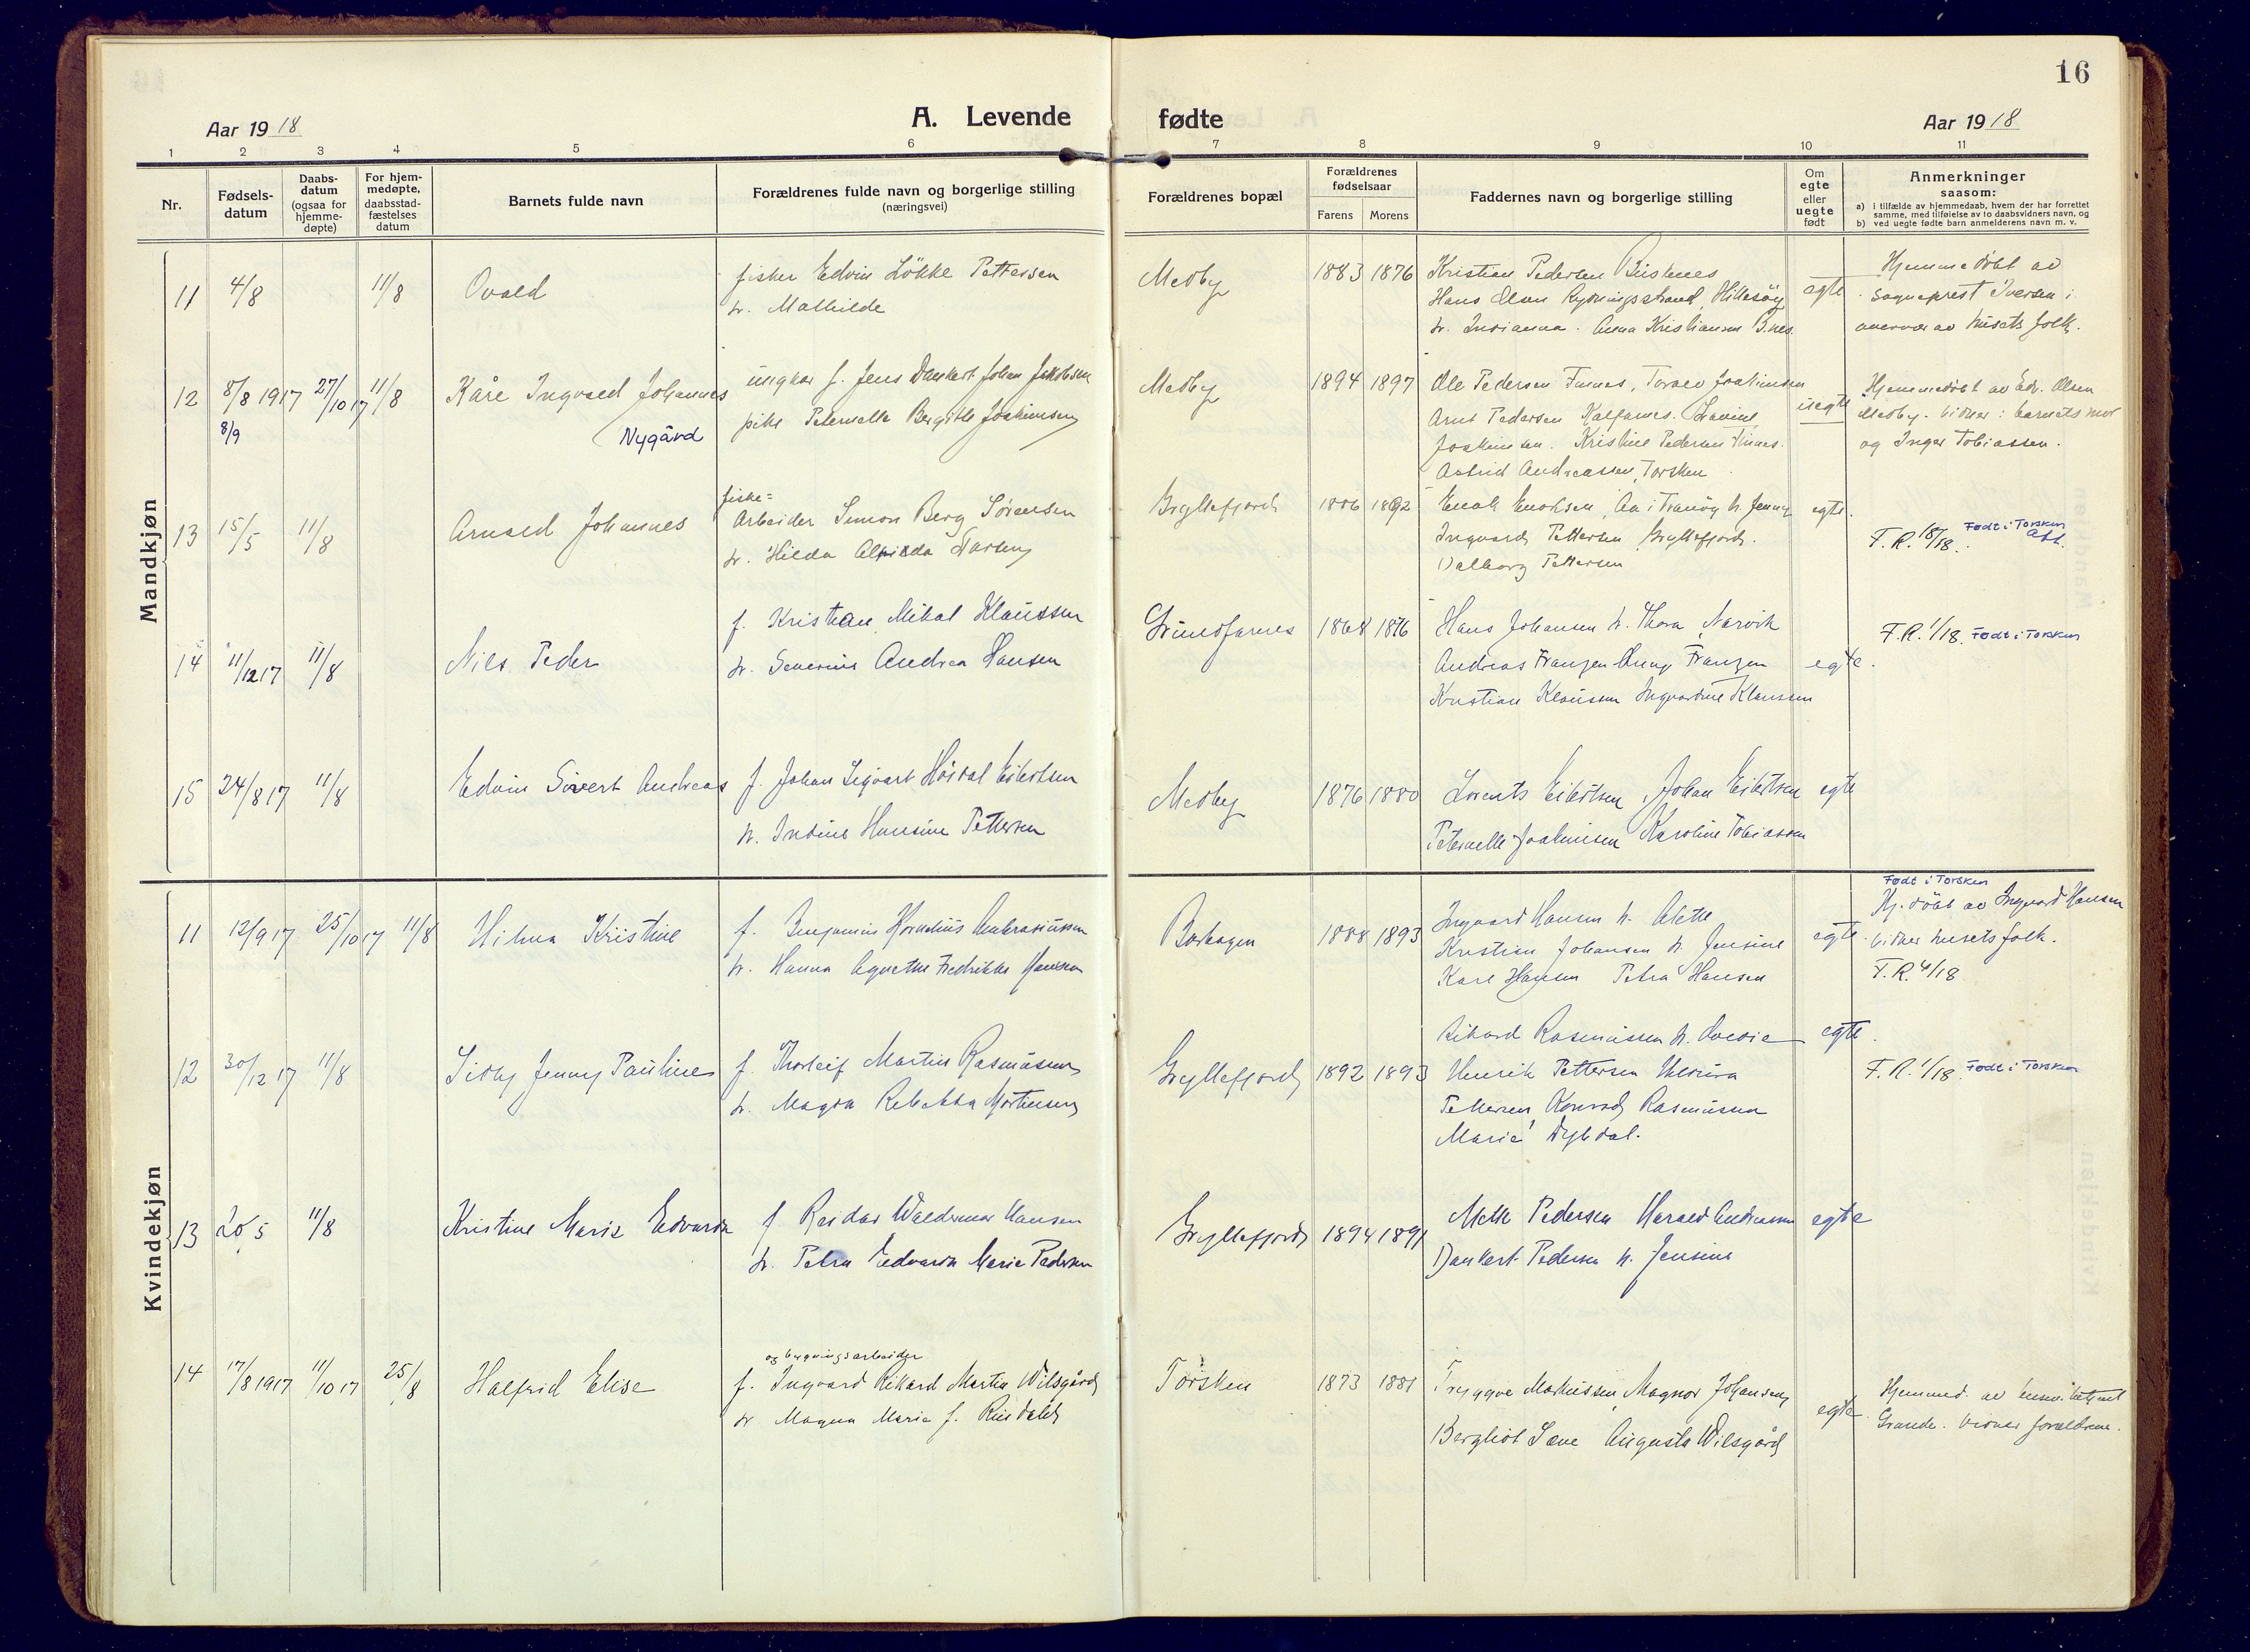 16
Aar 1918
A. Levende fødte
Aar 1918
1 2 3 4 5 6 7 8 9 10 11
Nr.
Fødsels-
datum
Daabs-
datum
(ogsaa for
hjemme-
døpte)
For hjem-
medøpte,
daabsstad-
fæstelses
datum
Barnets fulde navn
Forældrenes fulde navn og borgerlige stilling
(næringsvei)
Forældrenes bopæl
Forældrenes
fødselsaar
Farens Morens
Faddernes navn og borgerlige stilling
Om
egte
eller
uegte
født
Anmerkninger
saasom:
a) i tilfælde av hjemmedaab, hvem der har forrettet
samme, med tilføielse av to daabsvidners navn, og
b) ved uegte fødte barn anmelderens navn m. v.
Mandkjøn
11 4/8 11/8 Ovald
fisker Edvin Løkke Pettersen
h. Mathilde
Medby 1883 1876
Kristian Pedersen
Hans Olsen Rydningsstrand, Hillesöy
h. Indianna. Anna Kristiansen
egte
Hjemmedöbt av
sogneprest Iversen i
overvær av husets folk.
12 8/8 1917 27/10 17 11/8 Kåre Ingvald Johannes
8/9
Nygård
ungkar f. Jens Dankert Johan Jakobsen
pike Peternelle Bergitte Joakimsen
Medby 1894 1897
Ole Pedersen Finnes, Torlev Joakimsen
Arnt Pedersen Kalfarnes. Lavine
Joakimsen. Kristine Pedersen Finnes.
Astrid Andreassen, Torsken
uegte
Hjemmedöbt av Edv. Olsen
Medby. Vidner: barnets mor
og Inger Tobiassen.
13 15/5 11/8 Arnold Johannes
fiske=
Arbeider Simon Berg Sørensen
h. Hilda Alvilda Larsen
Gryllefjord 1886 1892
Enok Enoksen, Aa i Tranöy h. Jenny
Ingvard Pettersen Gryllefjord.
Valborg Pettersen
egte.
F.R. 18/18. Født i Torsken
14 11/12 17 11/8 Nils Peder
f. Kristian Mikal Klaussen
h. Severine Andrea Hansen
Grundfarnes 1868 1876
Hans Johansen h. Thora, Narvik
Andreas Franzen Anny Franzen
Kristian Klaussen Ingvardine Klaussen
egte.
F.R. 1/18. Født i Torsken
15 24/8 17 11/8 Edvin Sivert Andreas
f. Johan Sigvart Hördal Eibertsen
h. Indine Hansine Pettersen
Medby 1876 1880
Lorents Eibertsen, Johan Eibertsen
Peternelle Joakimsen Karoline Tobiassen
egte
Kvindekjøn
11 12/9 17 25/10 17 11/8 Hilma Kristine
f. Benjamin Kornelius Ambrosiussen
h. Hanna Agnethe Fredrikke Hansen
1888 1893
Ingvard Hansen h. Alette
Kristian Johansen h. Jensine
Karl Hansen Petra Hansen
egte.
Født i Torsken
Hj. döbt av Ingvard Hansen
Vidner husets folk.
F.R. 4/18
12 30/12 17 11/8 Sidby Jenny Pauline
f. Thorleif Martin Rasmussen
h. Magda Rebekka Mortensen
Gryllefjord 1892 1893
Rikard Rasmussen h. Lovdie
Henrik Pettersen
Pettersen, Konrad Rasmussen
Marie Dybdal.
egte.
F.R. 1/18. Født i Torsken
13 11/8 Kristine Marie Edvarda
f Reidar Waldemar Hansen
h. Petra Edvarda Marie Pedersen
Gryllefjord 1894 1891
Mette Pedersen Harald Andreassen
Dankert Pedersen h. Jensine
egte
14 17/8 1917 11/10 17 25/8 Halfrid Elise
og bergningsarbeider
f. Ingvard Rikard Martin Wilsgård
h Magna Marie f. Rindahl
Torsken 1873 1881
Tryggve Markussen, Magnor Johansen
Bergliot Lane Augusta Wilsgård
egte.
Hjemmed. av
Grande. Vidner forældrene.